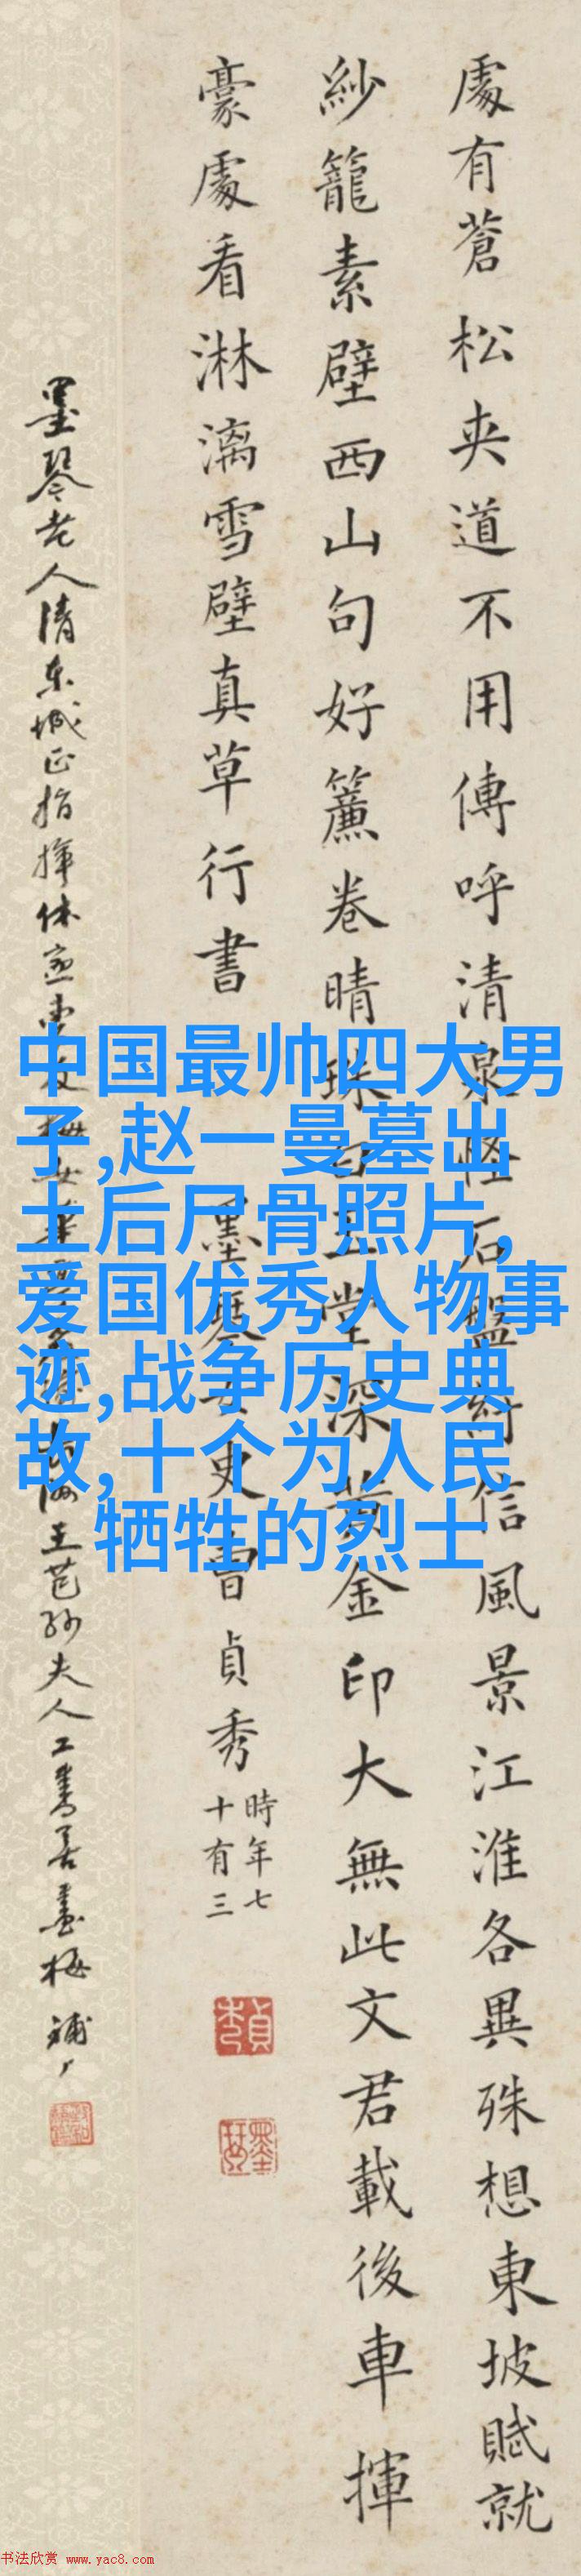 處有蒼松夾道不用傳呼清泉怪石盤紆信風景江淮各異殊想東坡賦就
紗籠素壁西山句好簾卷晴珠白玉堂深黃金印大無此文君載後車揮
豪處看淋漓雪壁真草行書
墨琴女史曹貞秀
時年七
十有三
墨琴老人清东城正指挥
王芑孙夫人工書善畫梅
中国最帅四大男
子,赵一曼墓出
土后尸骨照片,
爱国优秀人物事
迹,战争历史典
故,十个为人民
牺牲的烈士
书法欣赏 www.yac8.com